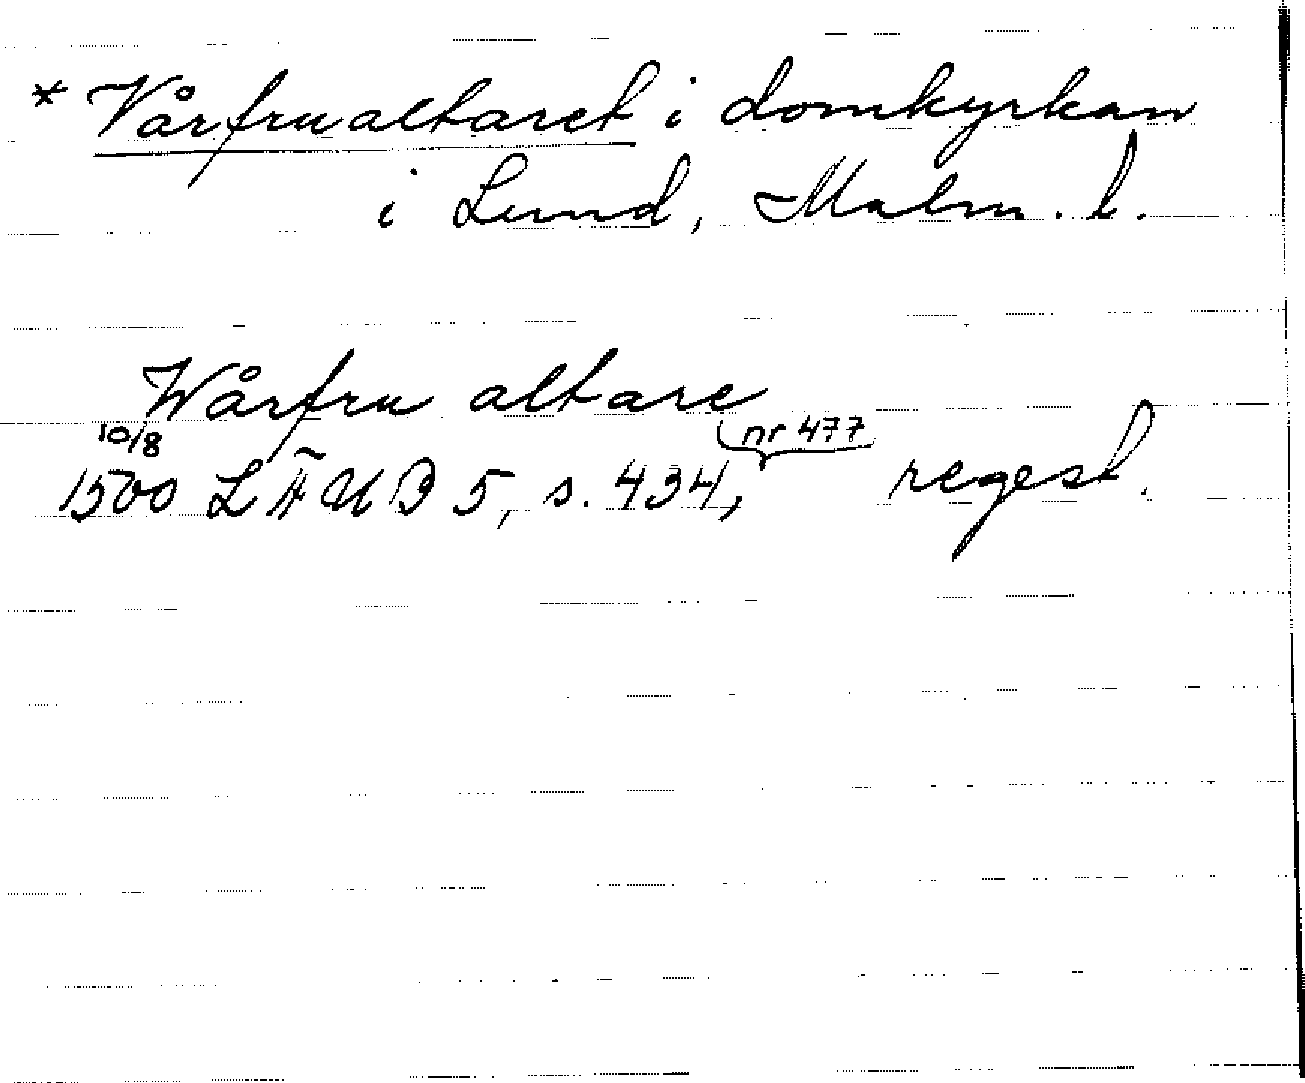 * Vårfrualtaret i domkyrkan
i Lund, Malm. l.
Wårfru altare
10/8 nr 477
1500 LÄUB 5, s. 434, regest.